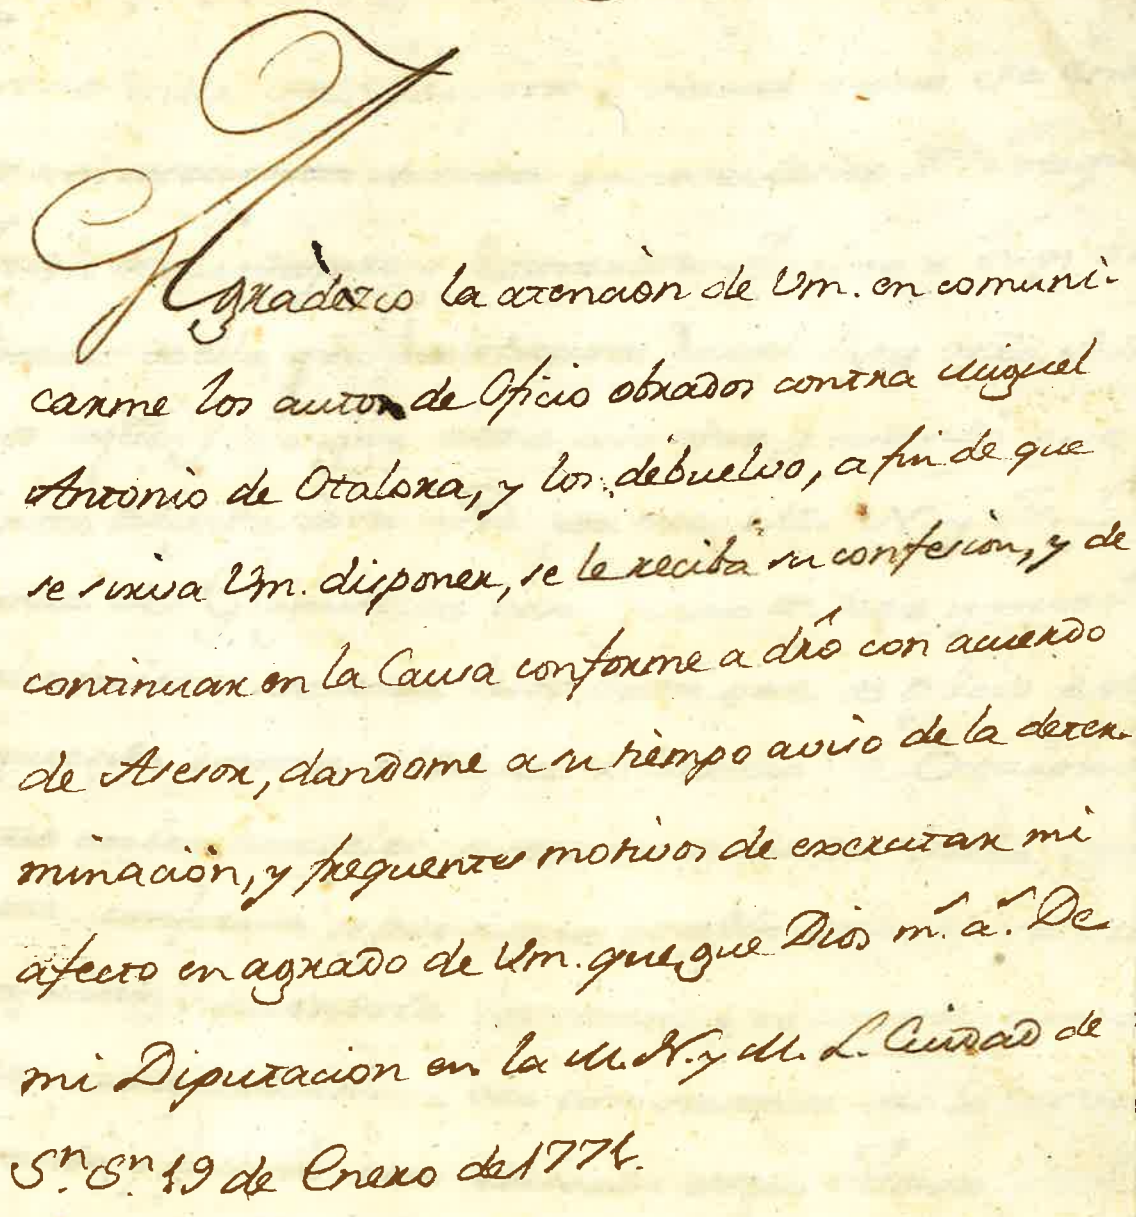 Agradezco la atencion de Vm. en comuni-
carme los autos de Oficio obrados contra Miguel
Antonio de Otalora, y los debuelvo, a fin de que
se sirva Vm. disponer, se le reciba su confesion, y de
continuar en la Causa conforme a dr̃o con acuerdo
de Asesor, dandome a su tiempo aviso de la deter-
minacion, y frequentes motivos de exercitar mi
afecto en agrado de Vm. que gue Dios m.ˢ a.ˢ De
mi Diputacion en la M. N. y M. L. Ciudad de
S.ⁿ S.ⁿ 19 de Enero de 1771.